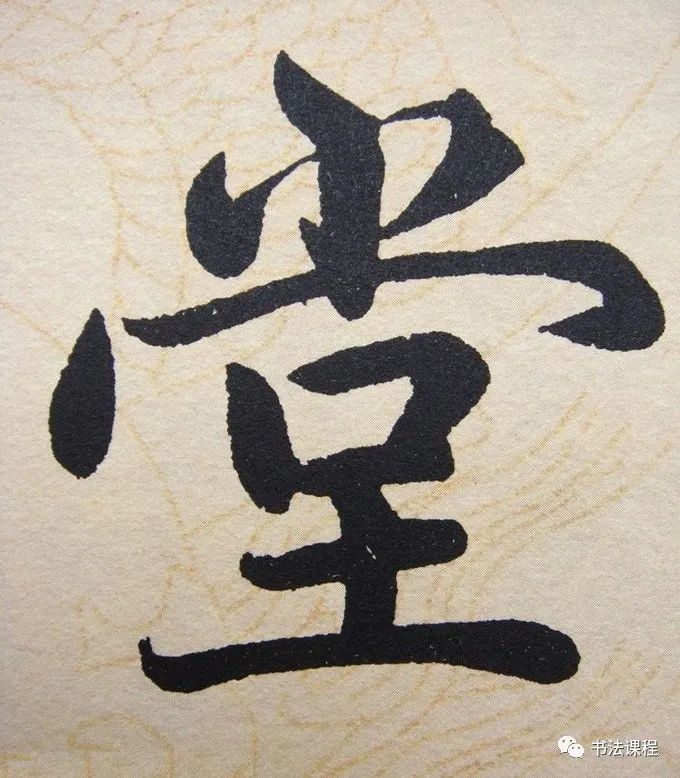 堂
书法课程